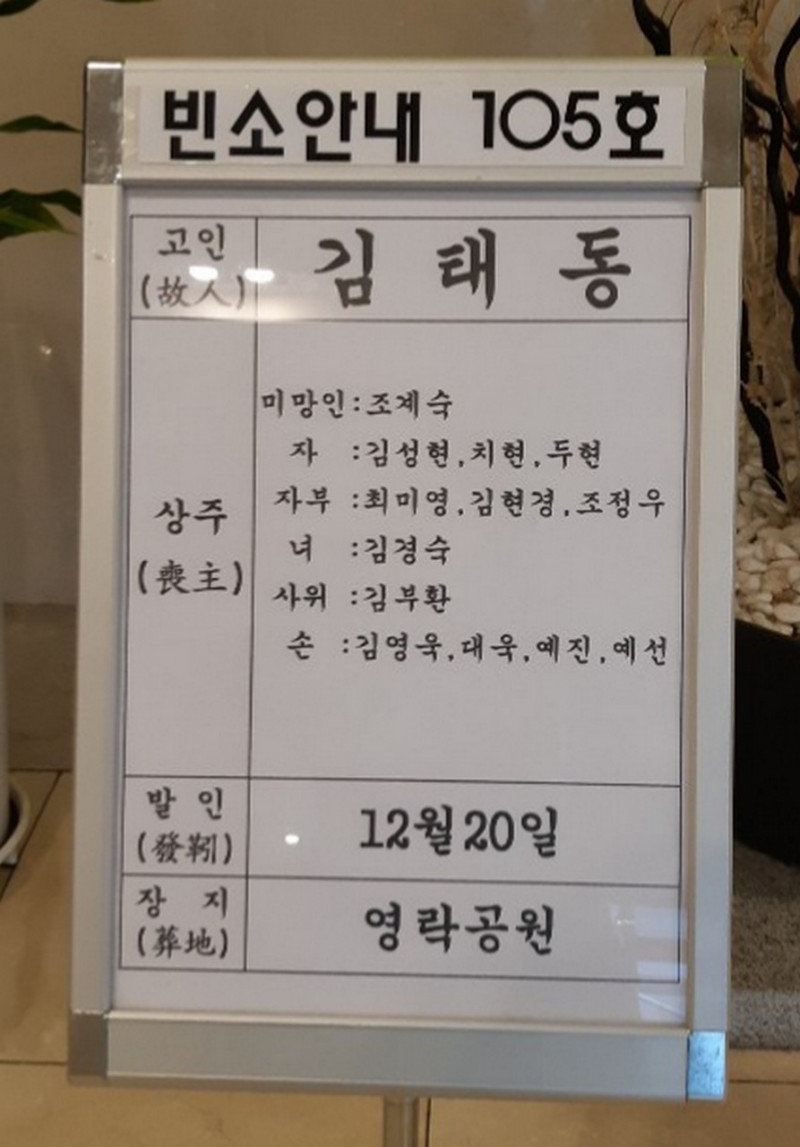 빈소안내 105호
고인
(故人)
김 태 동
상주
(喪主)
미망인:조계숙
자 :김성현,치현,두현
자부 :최미영,김현경,조정우
녀 :김경숙
사위 :김부환
손 :김영욱,대욱,예진,예선
발 인
(發靷)
12월20일
장 지
(葬地)
영락공원